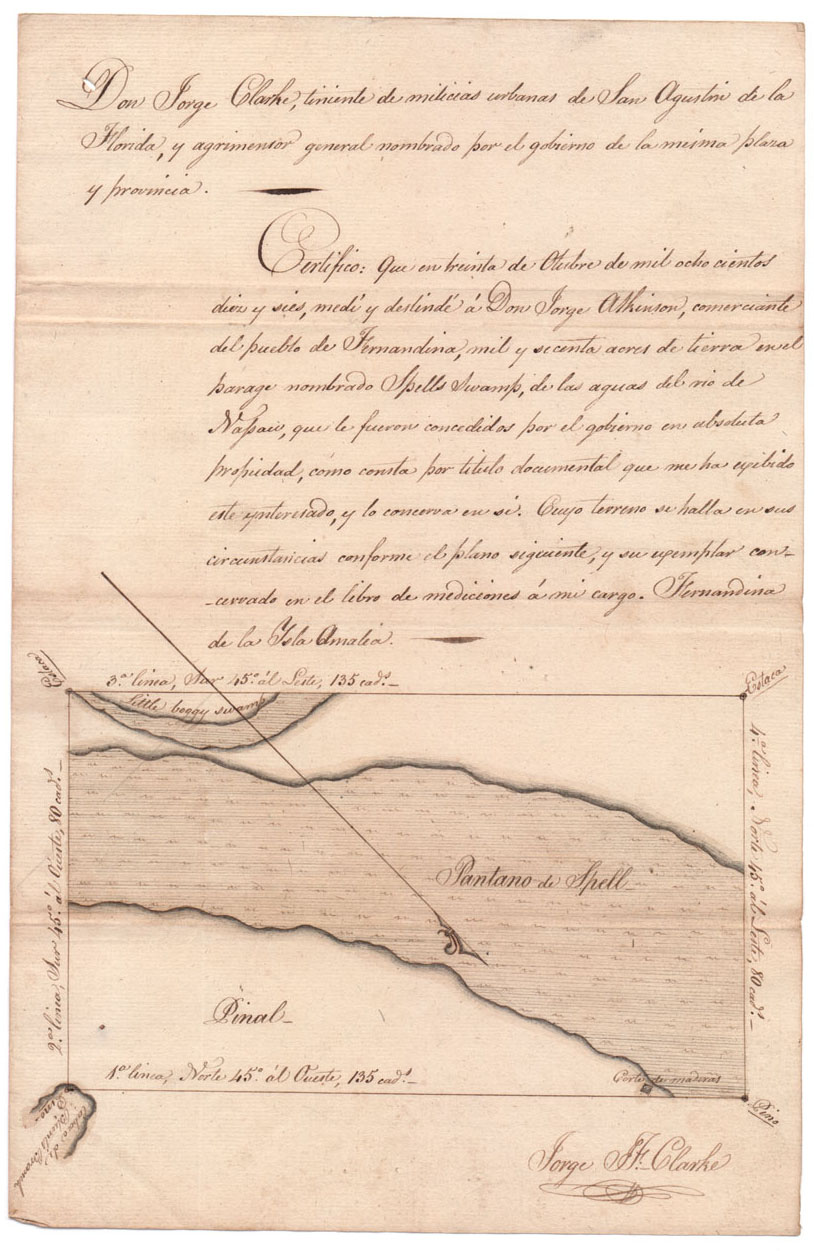 Don Jorge Clarke, tiniente de milicias urbanas de San Agustin de la
Florida, y agrimensor general nombrado por el gobierno de la mésma plaza
y provincia.
Certifico: Que en treinta de Otubre de mil ocho cientos
diez y sies, medí y destindé á Don Jorge Atkinson, comerciante
del pueblo de Fernandina, mil y secenta acres de tierra en el
parage nombrado Spells Swamp, de las aguas del rio de
Nassau, que le fueron concedidos por el gobierno en absoluta
propiedad, como consta por titulo documental que me ha exibido
este ynteresado, y lo concerva en sí. Cuyo terreno se halla en sus
circunstancias conforme el plano siguiente, y su exemplar con-
-cervado en el libro de mediciones á mi cargo. Fernandina
de la Ysla Amalia.
Estaca
3.a linea, Sur 45.o ál Leste, 135 cad.s
Estaca
Little boggy swamp
2.a linea, Sur 45.o ál Oueste, 80 cad.s
4.a linea, Norte 45.o ál Leste, 80 cad.s
Pantano de Spell
Pinal
1.a linea, Norte 45.o ál Oueste, 135 cad.s
Corte de maderas
Pino
Pino
Jorge J. F. Clarke